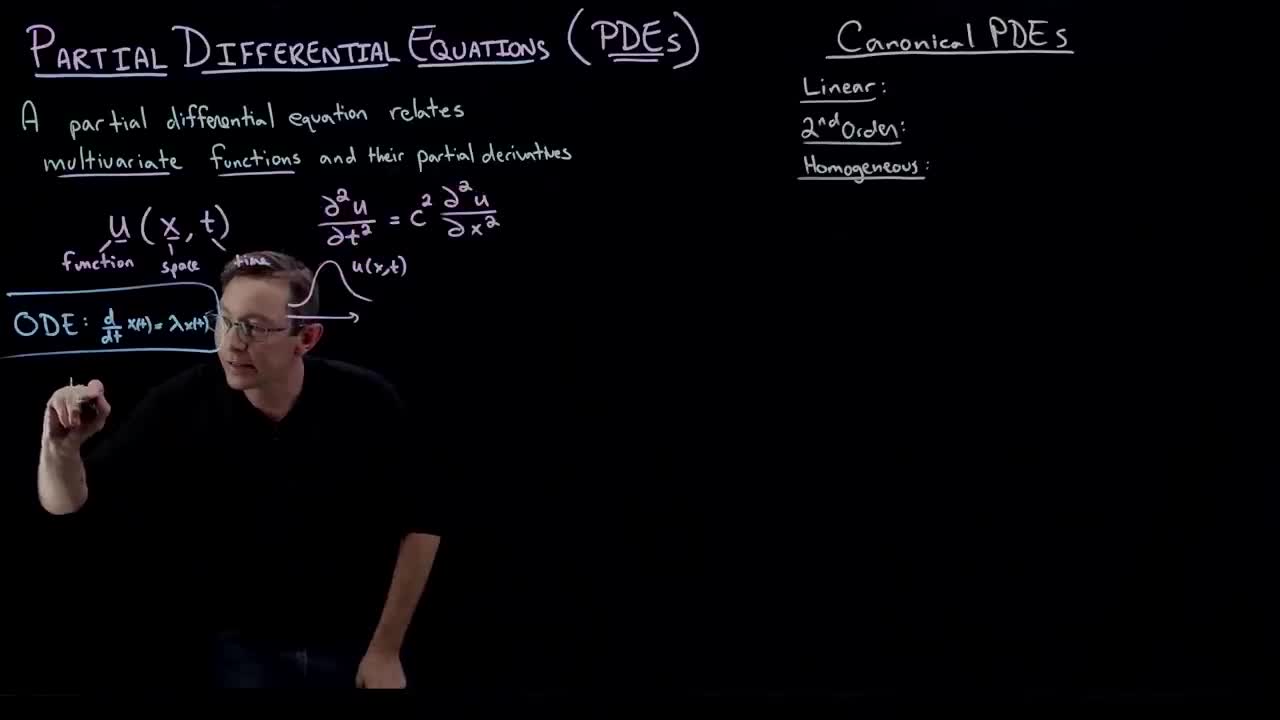 PARTIAL DIFFERENTIAL EQUATIONS (PDEs)
A partial differential equation relates
multivariate functions and their partial derivatives
u(x,t)
function space time
∂²u/∂t² = c² ∂²u/∂x²
u(x,t)
ODE: d/dt x(t) = λx(t)
Canonical PDEs
Linear:
2nd Order:
Homogeneous: